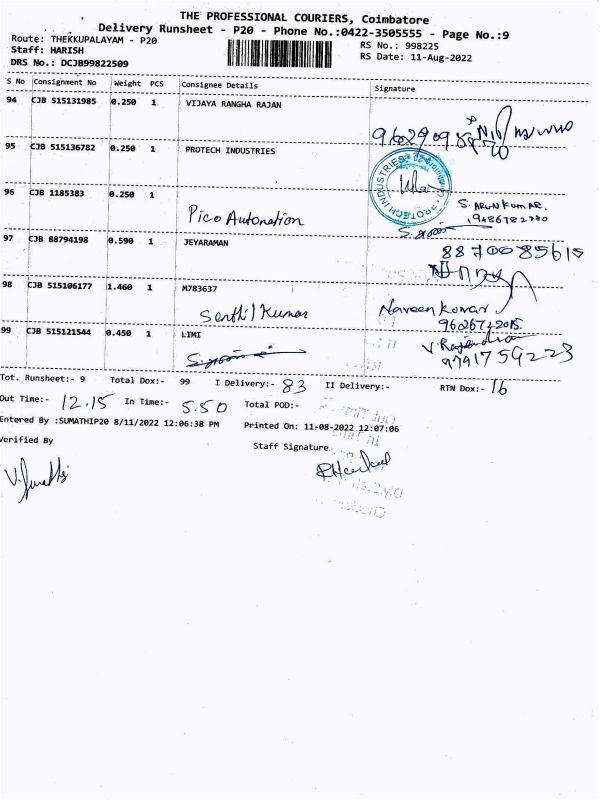 THE PROFESSIONAL COURIERS, Coimbatore
Delivery Runsheet - P20 - Phone No.:0422-3505555 - Page No.:9
Route: THEKKUPALAYAM - P20
RS No.: 998225
Staff: HARISH
RS Date: 11-Aug-2022
DRS No.: DCJB99822509
S No Consignment No Weight PCS Consignee Details Signature
94 CJB 515131985 0.250 1 VIJAYA RANGHA RAJAN
95 CJB 515136782 0.250 1 PROTECH INDUSTRIES
PROTECH INDUSTRIES
96 CJB 1185383 0.250 1
Pico Automation
S. ARUNKUMAR.
97 CJB 88794198 0.590 1 JEYARAMAN
8870085615
98 CJB 515106177 1.460 1 M783637
Senthil Kumar
Naveen Kumar
99 CJB 515121544 0.450 1 LIMI
V. Rajendran
9791759223
Tot. Runsheet:- 9 Total Dox:- 99 I Delivery:- 83 II Delivery:- RTN Dox:- 16
Out Time:- 12.15 In Time:- 5.50 Total POD:-
Entered By :SUMATHIP20 8/11/2022 12:06:38 PM Printed On: 11-08-2022 12:07:06
Verified By
Staff Signature